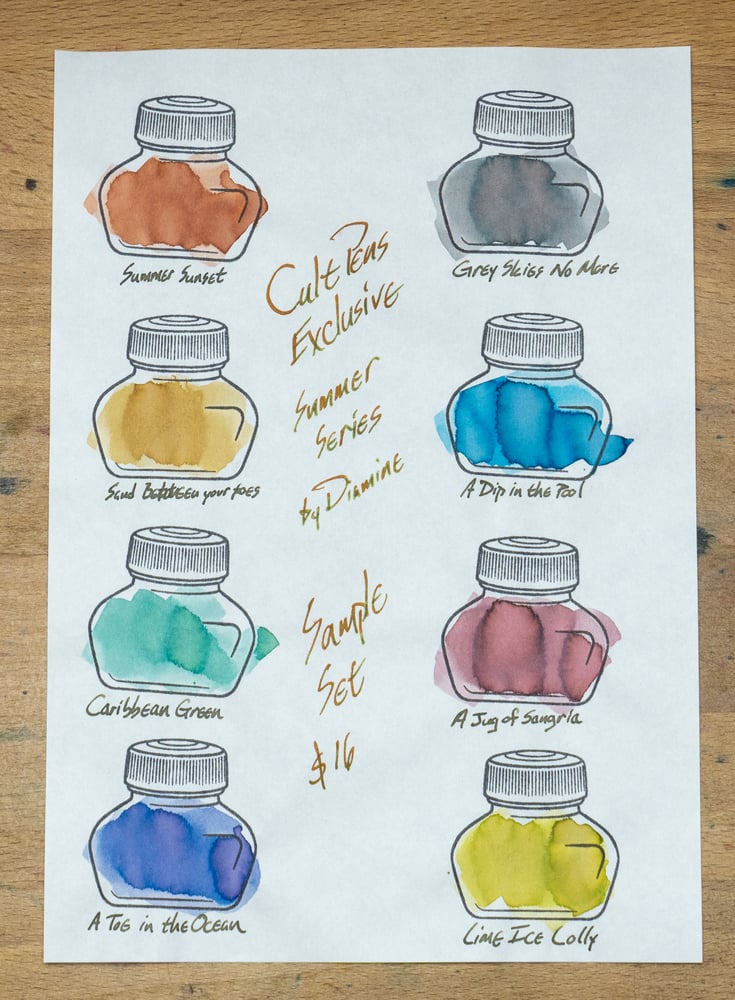 Summer Sunset
Grey Skies No More
Cult Pens
Exclusive
Summer
Series
by Diamine
Sand Between your toes
A Dip in the Pool
Sample
Set
$16
Caribbean Green
A Jug of Sangria
A Toe in the Ocean
Lime Ice Lolly